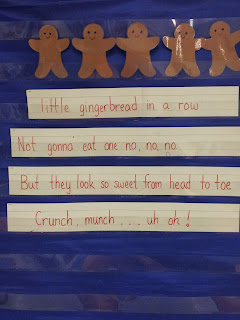 little gingerbread in a row
Not gonna' eat one no, no, no
But they look so sweet from head to toe
Crunch, munch . . . uh oh!